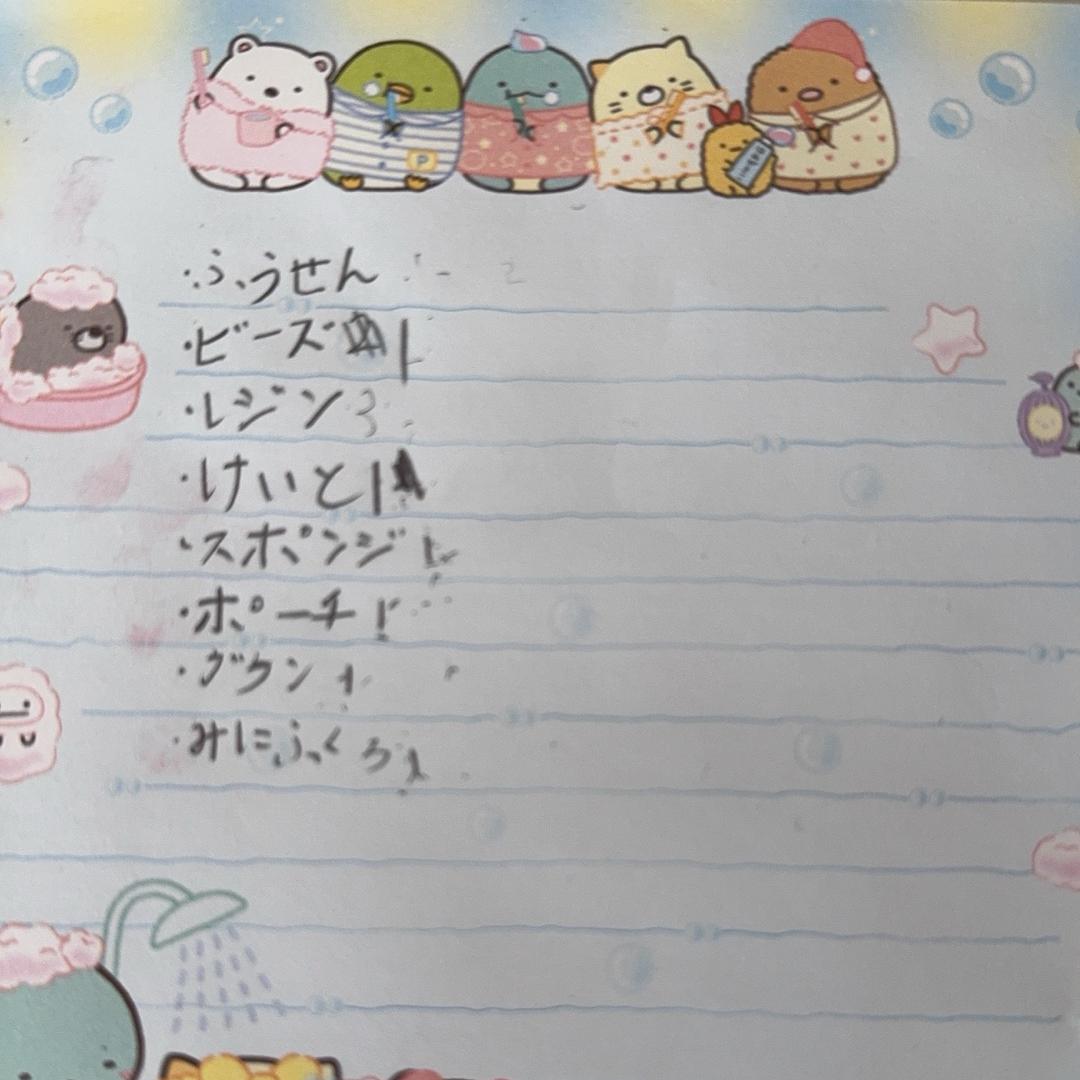 ・ふうせん
・ビーズ 1
・レジン 3
・けいと 1
・スポンジ 1
・ポーチ 1
・グウン 1
・みにふくろ 1
P